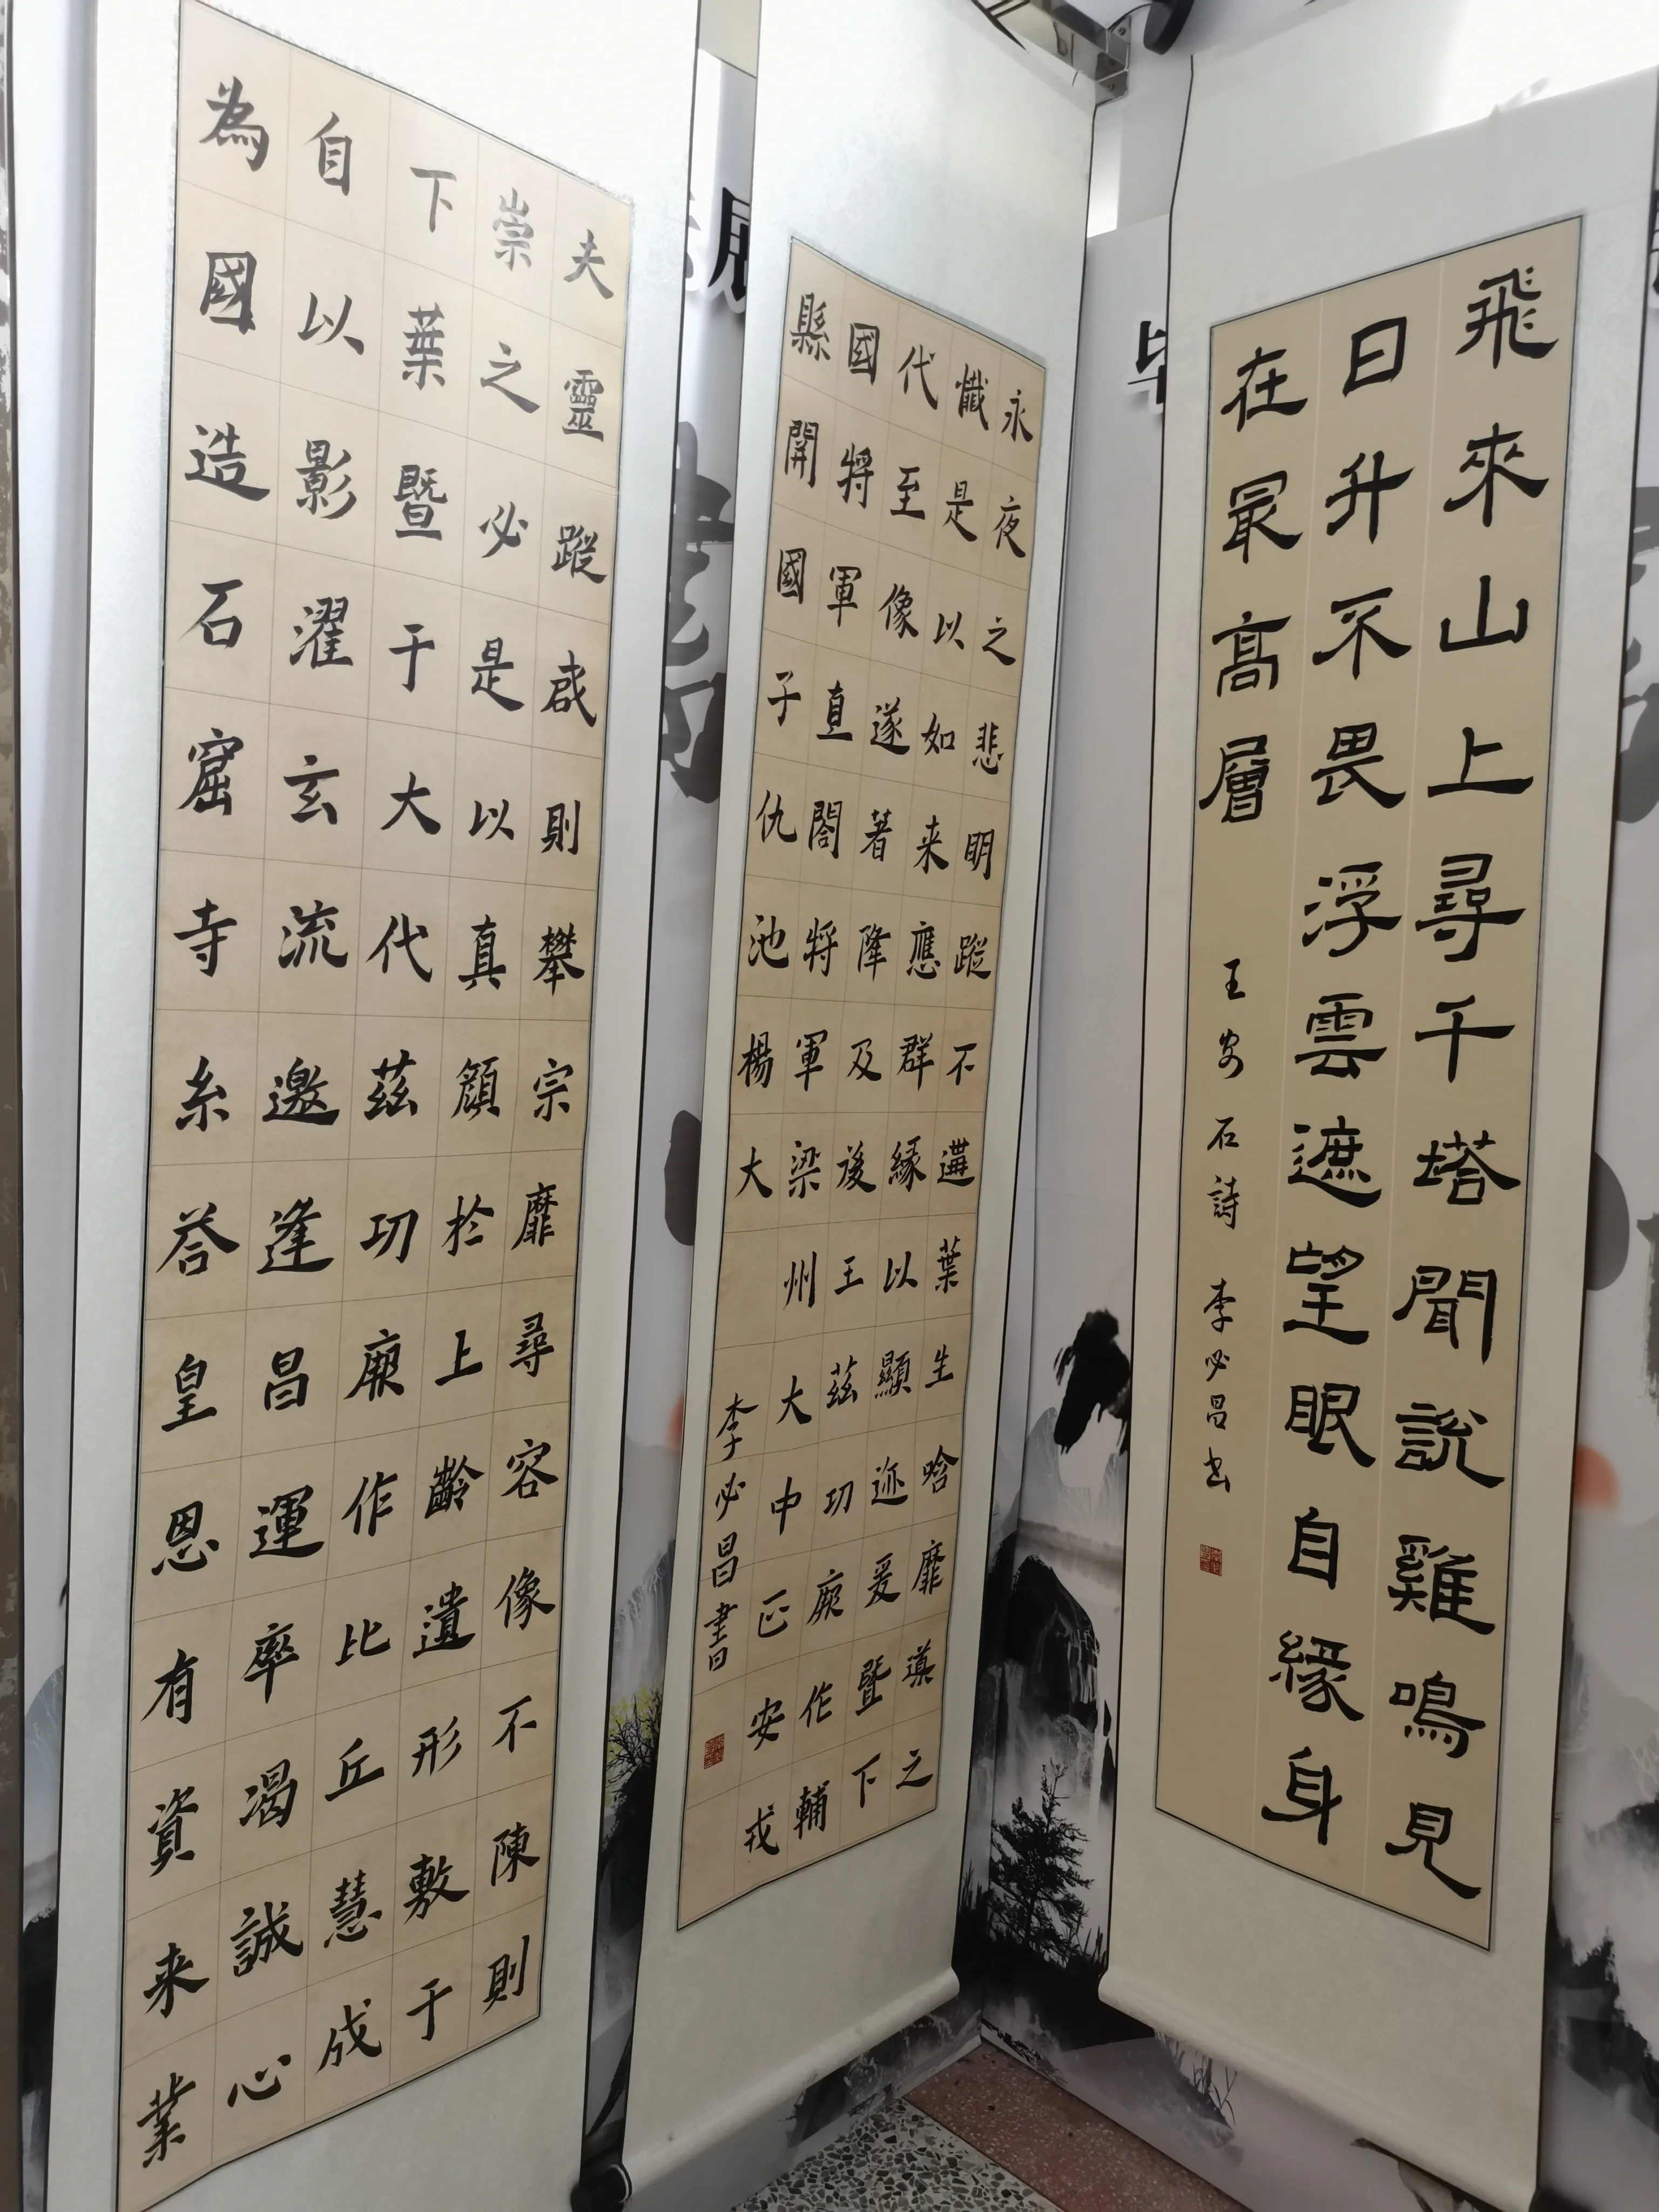 飛來山上尋千塔聞說雞鳴見
日升不畏浮雲遮望眼自緣身
在最高層
王安石詩 李必昌书
永夜之悲明蹤不遘葉生唅靡導之
懺是以如来應群緣以顯迹爰暨下
代至像遂著降及後王茲功厥作輔
國將軍直閤將軍梁州大中正安戎
縣開國子仇池楊大
李必昌書
夫靈蹤啟則攀宗靡尋容像不陳則
崇之必是以真顔於上齡遺形敷于
下葉暨于大代茲功厥作比丘慧成
自以影濯玄流邀逢昌運率渴誠心
為國造石窟寺糸荅皇恩有資来業